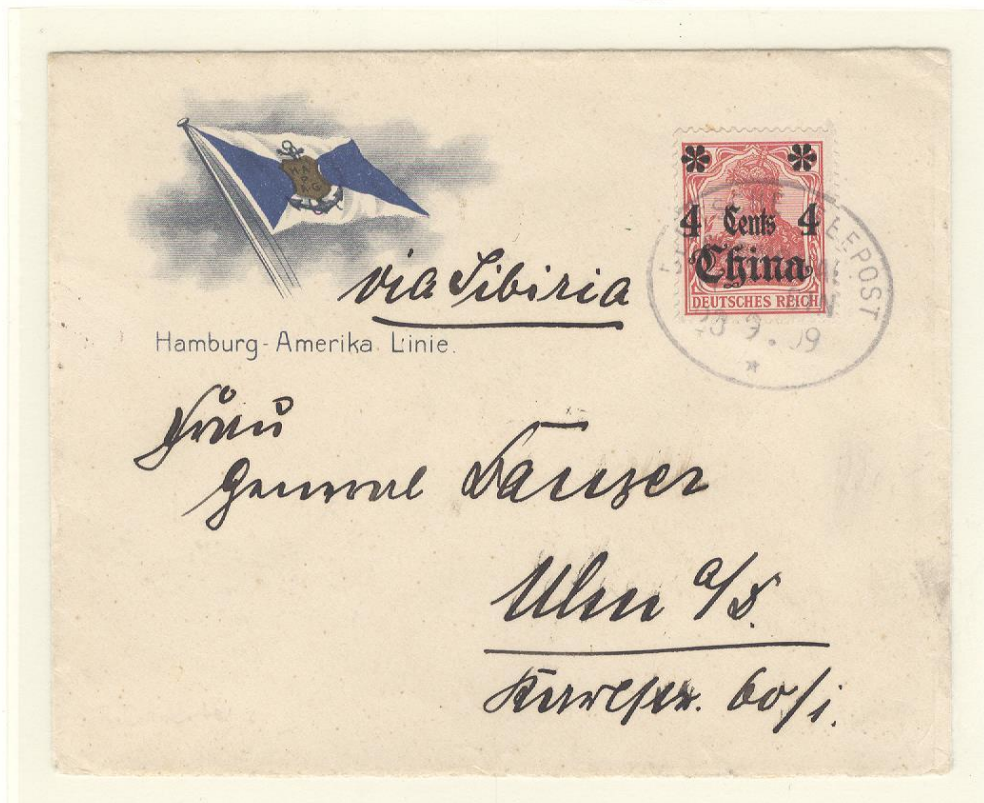 4 Cents 4
China
DEUTSCHES REICH
SEEPOST
23 9.09
via Sibiria
Hamburg-Amerika Linie.
Frau
General
Ulm a/D.
Karlstr. 60/I.